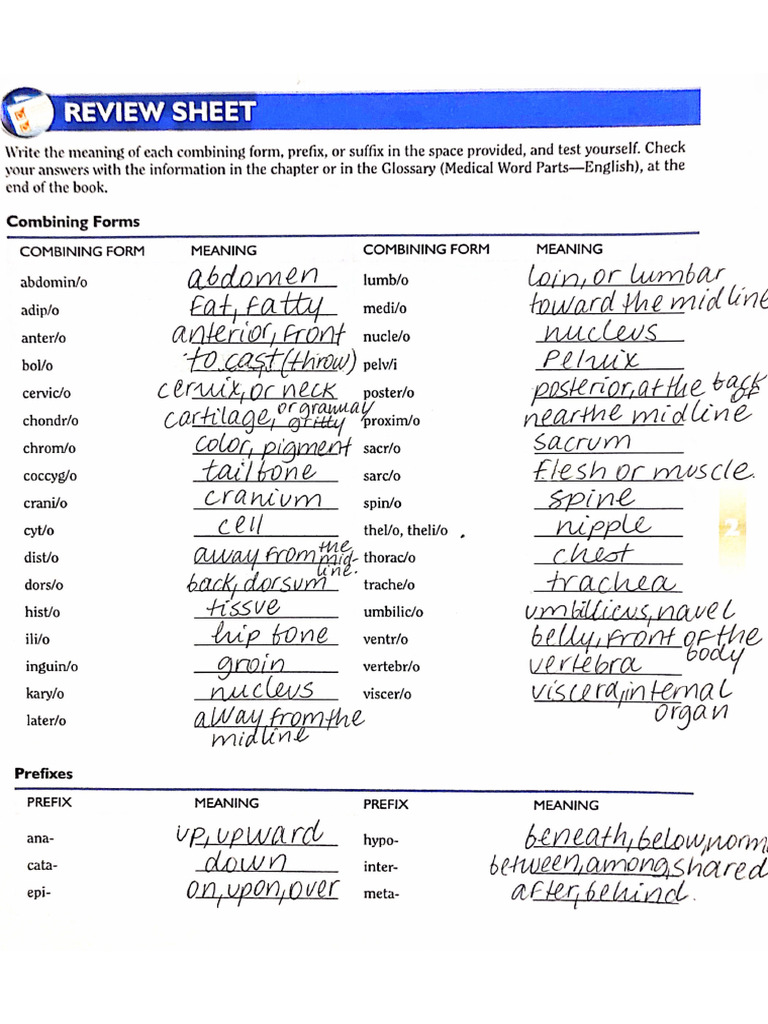 REVIEW SHEET
Write the meaning of each combining form, prefix, or suffix in the space provided, and test yourself. Check
your answers with the information in the chapter or in the Glossary (Medical Word Parts—English), at the
end of the book.
Combining Forms
COMBINING FORM MEANING COMBINING FORM MEANING
abdomin/o abdomen lumb/o loin, or lumbar
adip/o Fat, Fatty medi/o toward the midline
anter/o anterior, Front nucle/o nucleus
bol/o to cast (throw) pelv/i
cervic/o cervix, or neck poster/o posterior, at the back of
chondr/o cartilage, or gritty proxim/o near the midline
chrom/o color, pigment sacr/o sacrum
coccyg/o tailbone sarc/o flesh or muscle.
crani/o cranium spin/o spine
cyt/o cell thel/o, theli/o nipple
dist/o away from the mid-line. thorac/o chest
dors/o back, dorsum trache/o trachea
hist/o tissue umbilic/o umbillicus, navel
ili/o hip bone ventr/o belly, front of the body
inguin/o groin vertebr/o vertebra
kary/o nucleus viscer/o viscera, internal organ
later/o away from the
midline
Prefixes
PREFIX MEANING PREFIX MEANING
ana- up, upward hypo- beneath, below, norm
cata- down inter- between, among, shared
epi- on, upon, over meta- after, behind.
2